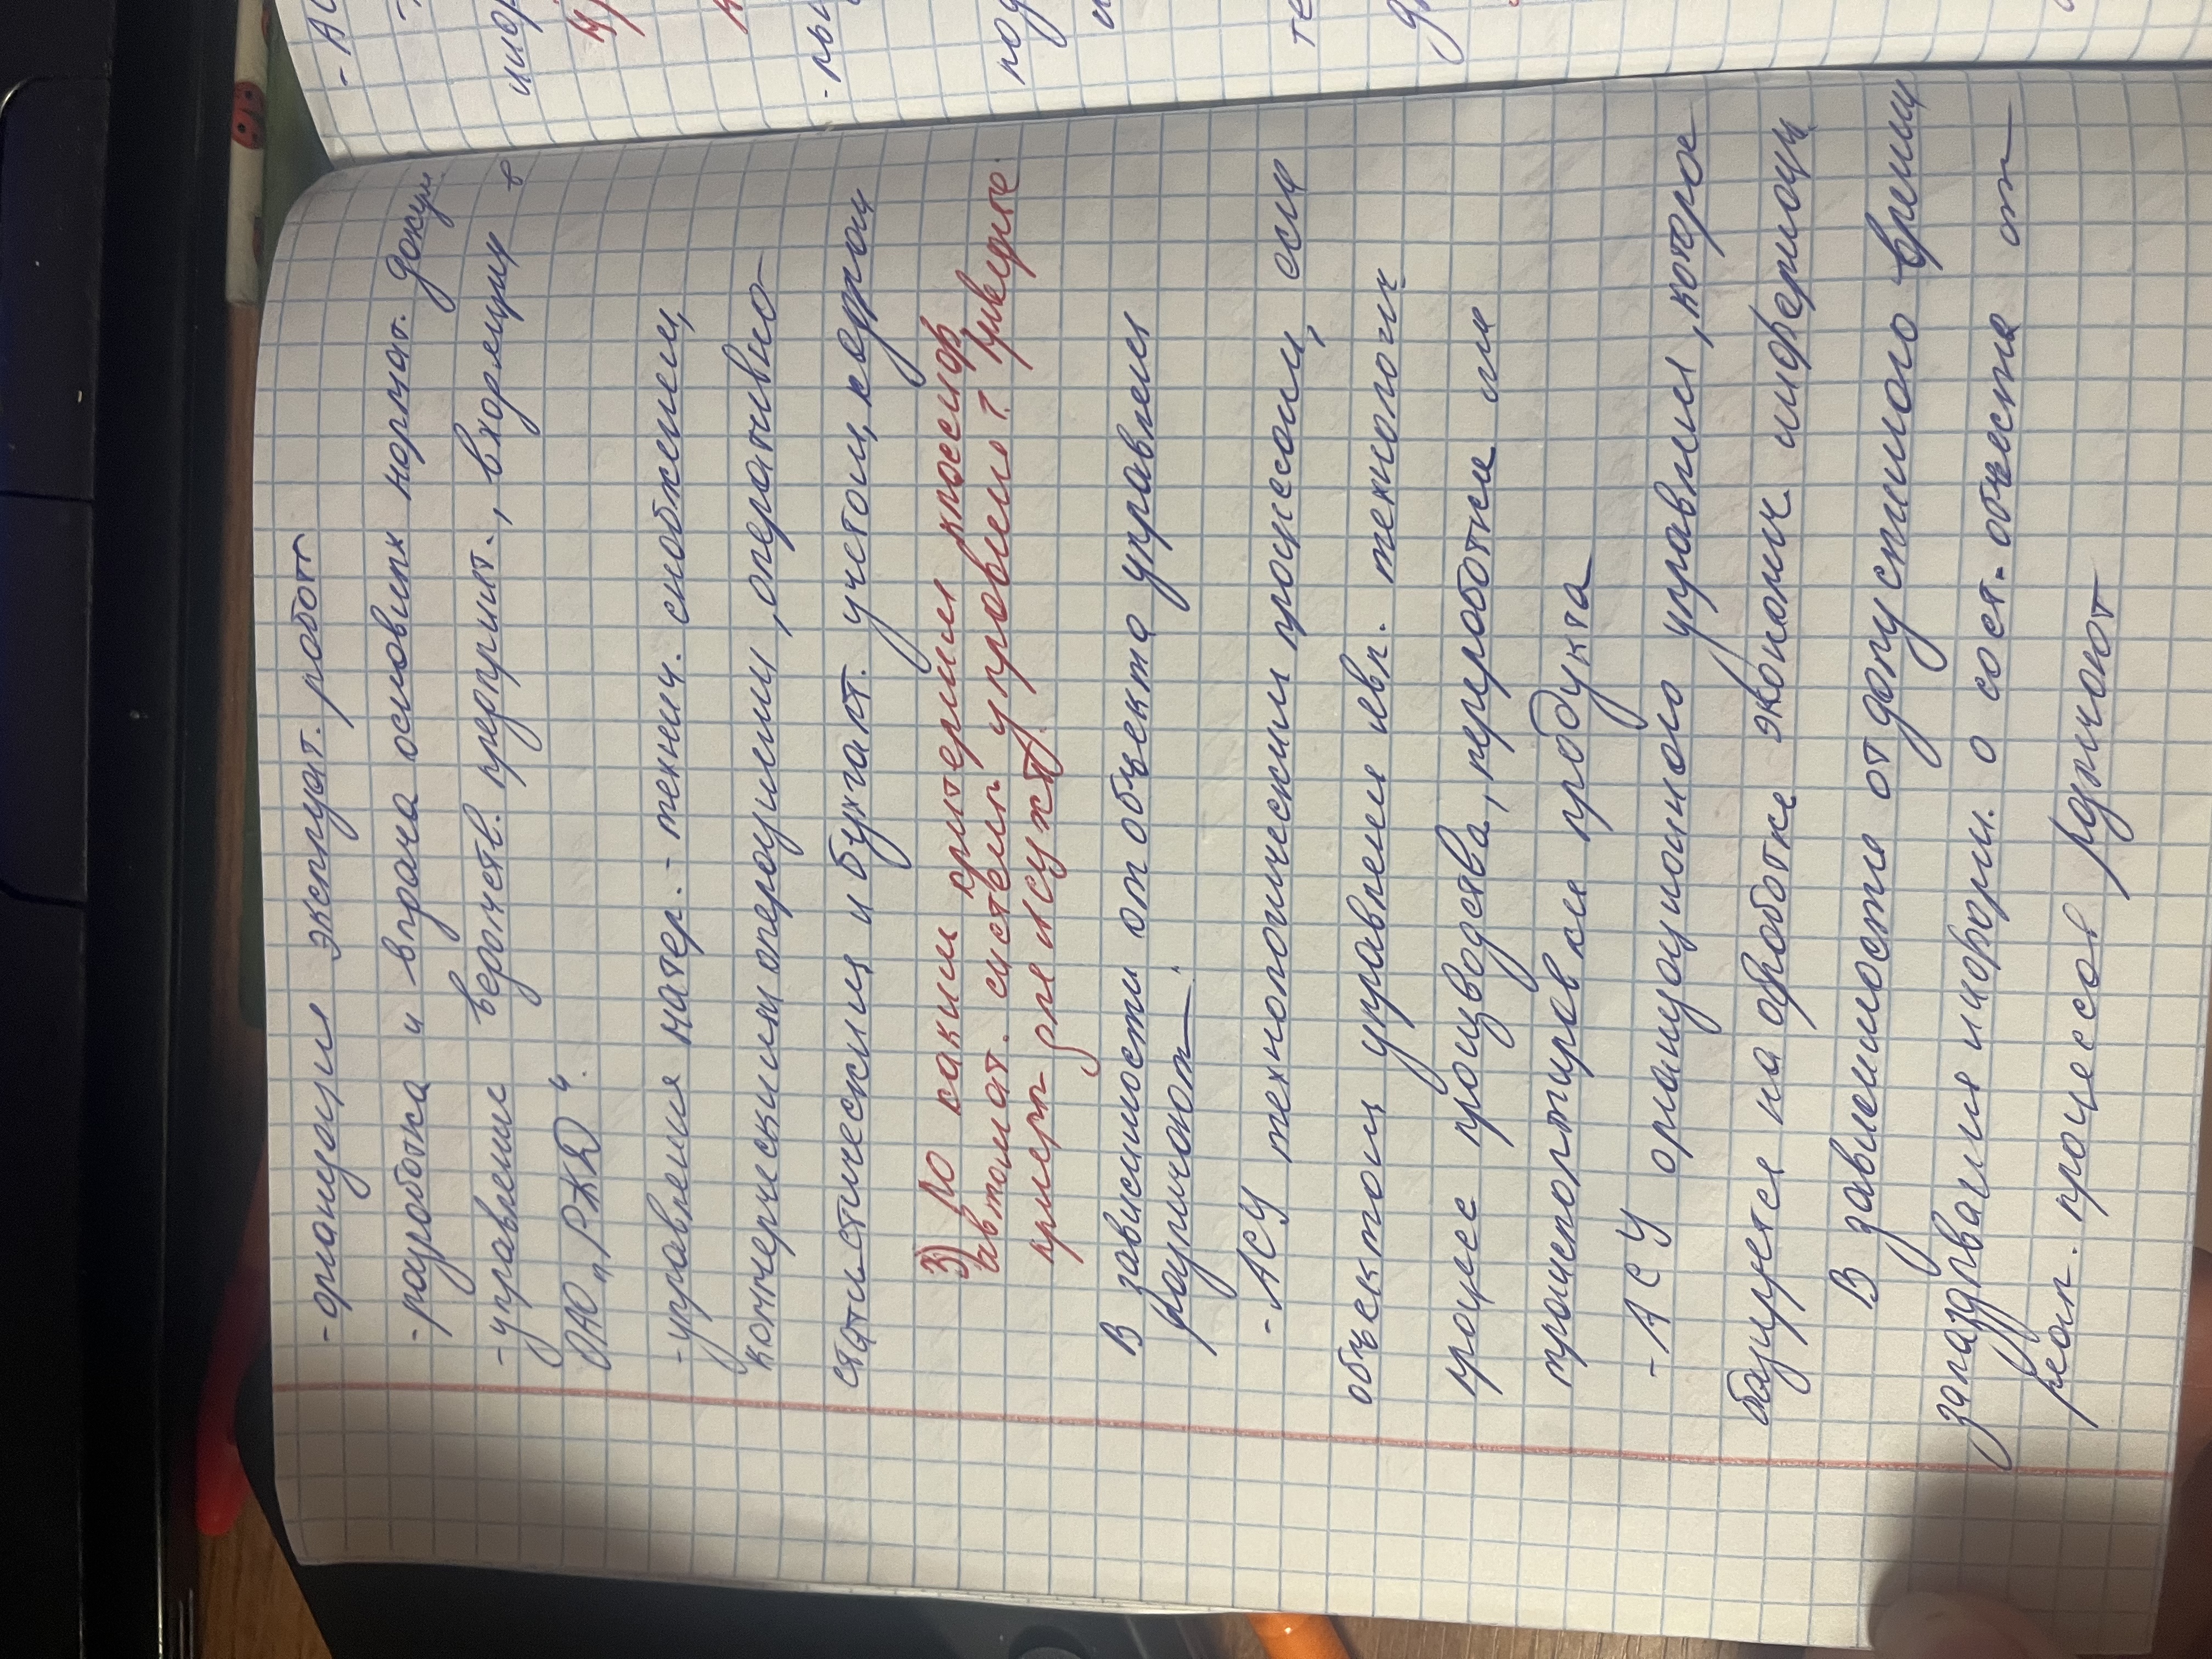 - организация эксплуат. работ
- разработка и втрача основных нормат. докум.
- управление вероятств. предприят., входящих в
ОАО "РЖД".
- управления матер.-технич. снобжением,
коммерческими операциями, оперативно-
статистическим и бухгалт. учетом, кадрами
3) По каким критериям классифр.
автомат. системы управления? Приведите
пример для АСУЖТ.
В зависимости от объекта управления
различают:
- АСУ технологическим процессом, если
объектом управления явл. технологич
процесс производства, переработки или
транспортировки продукта
- АСУ организационного управления, которое
базируется на обработке экономич информац.
В зависимости от допустимого времени
запаздывания информ. о сост. объекта от
реал. процессов различают